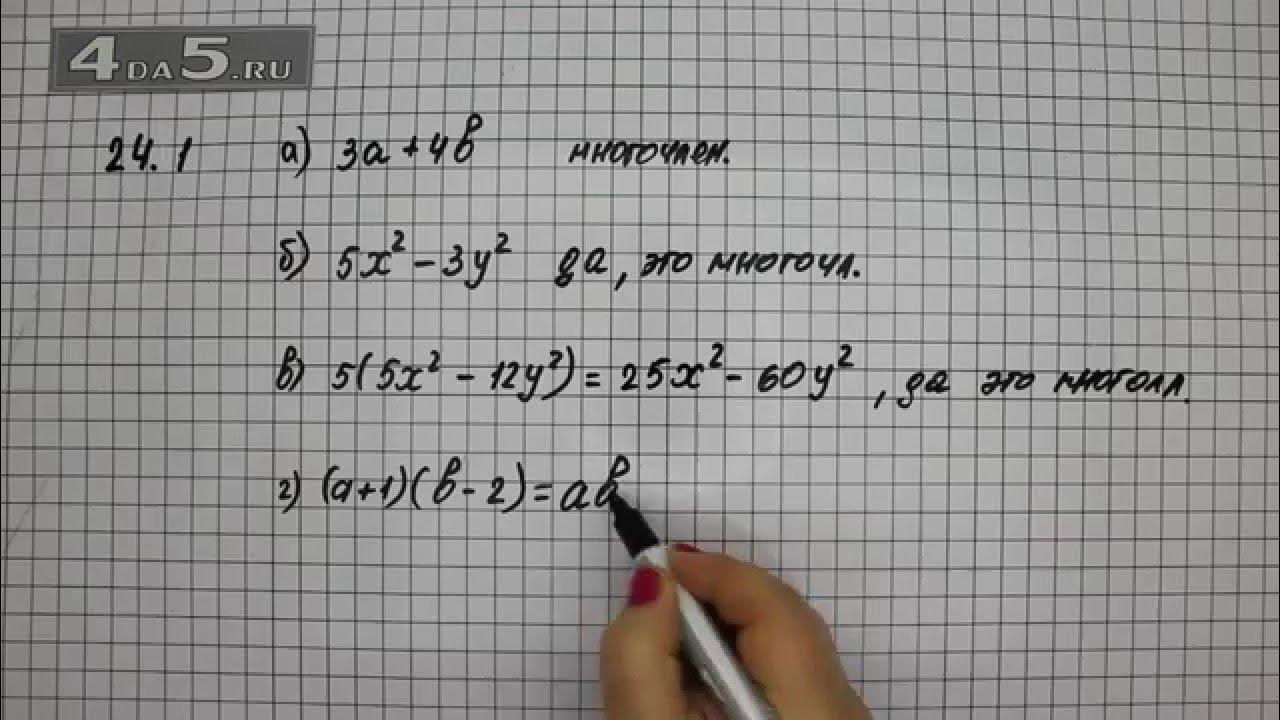 4DA5.RU
24.1 а) 3а + 4в многочлен.
б) 5x² - 3y² да, это многочл.
в) 5(5x² - 12y²) = 25x² - 60y², да это многолл.
г) (а+1)(в - 2) = ав